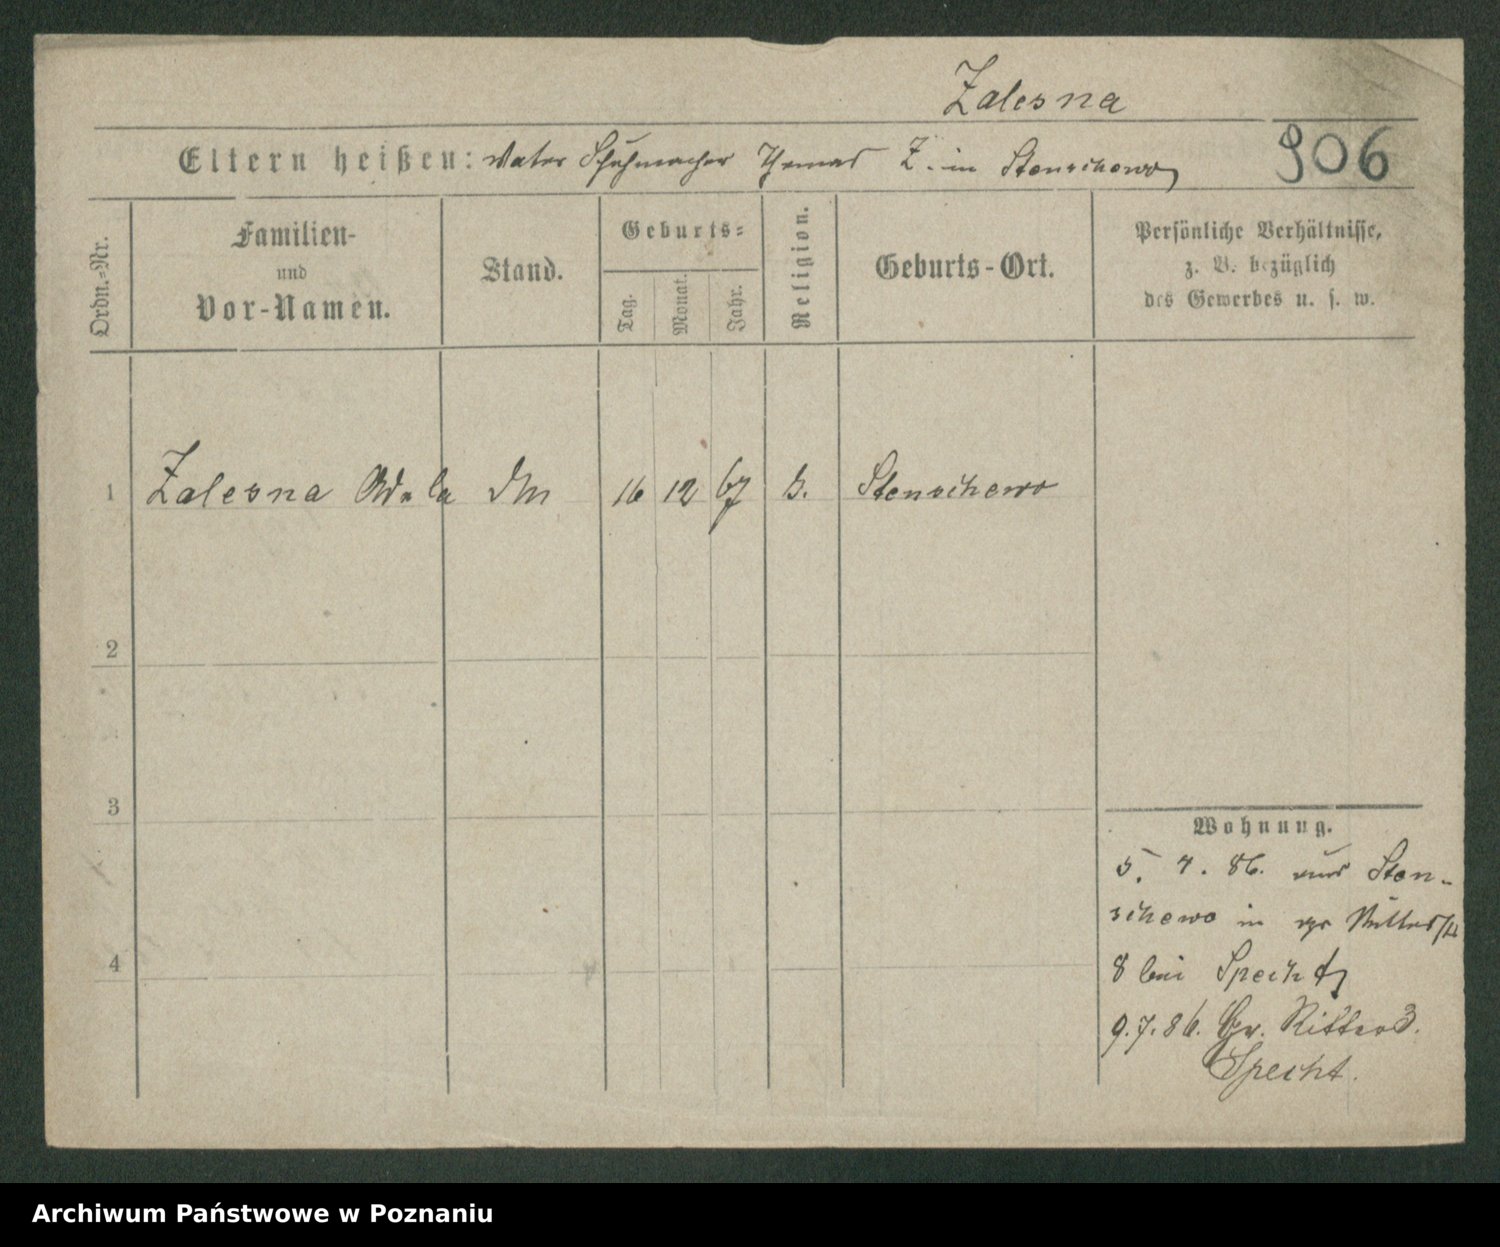 Zalesna
Eltern heißen: Vater Schuhmacher Thomas Z. in Stenschewo
906
Ordn.-Nr.
Familien-
und
Vor-Namen.
Stand.
Geburts-
Tag.
Monat.
Jahr.
Religion.
Geburts-Ort.
Persönliche Verhältnisse,
z. B. bezüglich
des Gewerbes u. s. w.
1 Zalesna Adela 16 12 67 Stenschewo
2
3
4
Wohnung.
5. 7. 86. aus Sten-
schewo in gr Ritterst
8 bei Specht
9.7.86. Gr. Ritter 3.
Specht.
Archiwum Państwowe w Poznaniu